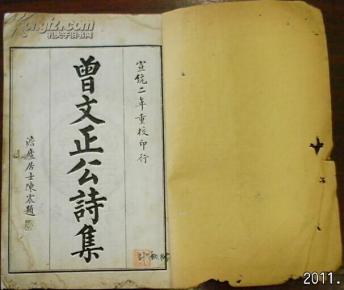 孔夫子旧书网
宣統二年重校印行
曾文正公詩集
澹廬居士陳宸題
2011.